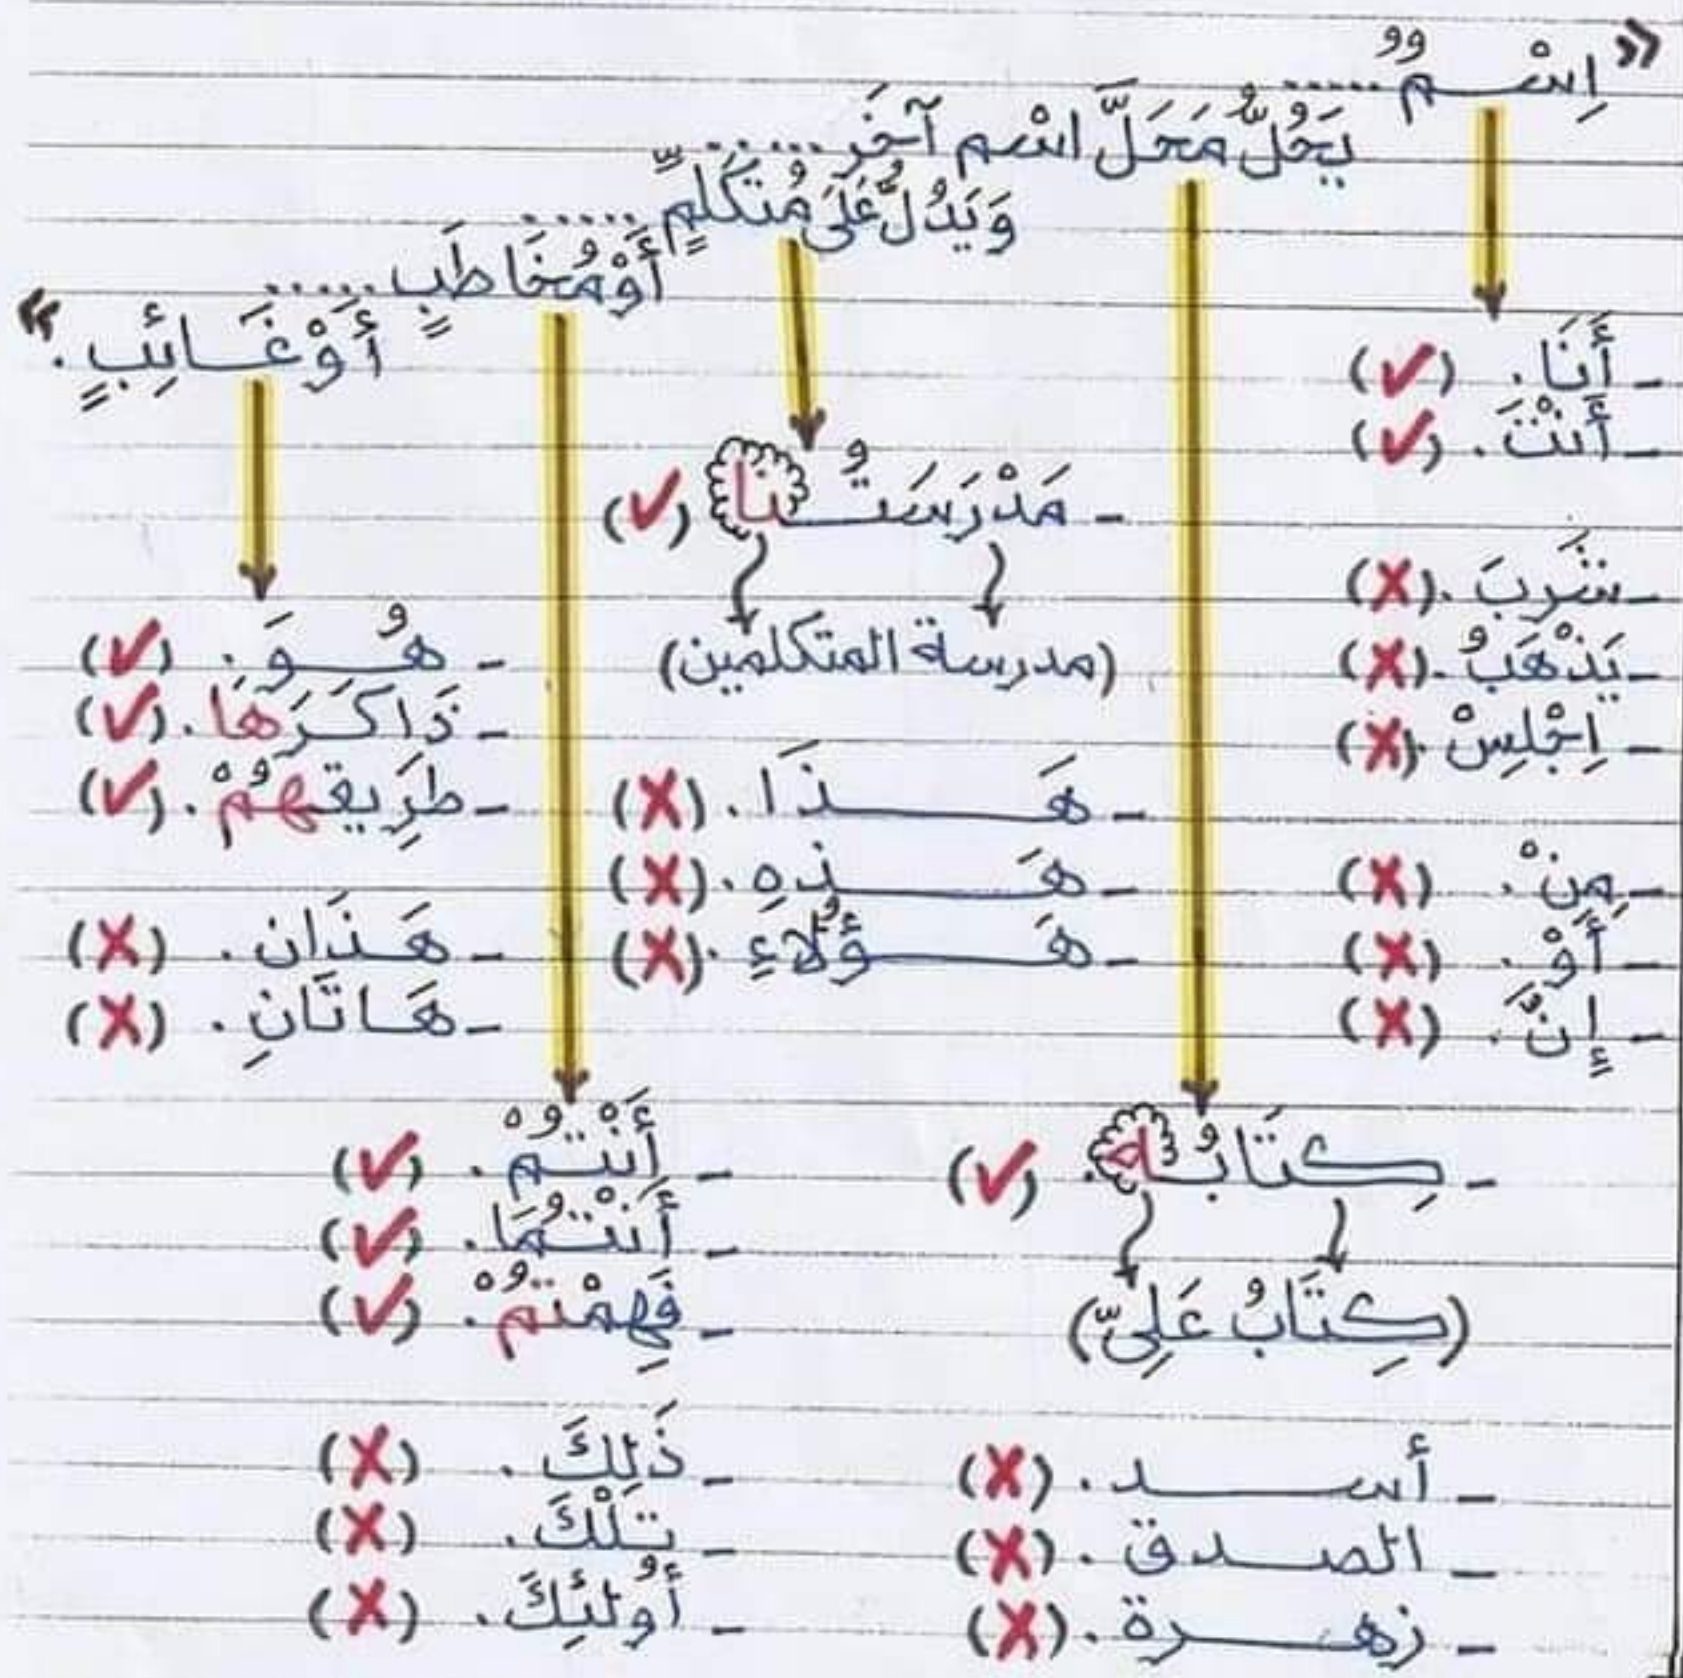 « اِسْمٌ .....
يَحُلُّ مَحَلَّ اسْم آخَر ......
وَيَدُلُّ عَلَى مُتَكَلِّمٍ ......
أَوْ مُخَاطَبٍ .....
أَوْ غَائِبٍ . »
- أَنَا . (✓)
- أَنْتَ . (✓)
- شَرِبَ . (X)
- يَذْهَبُ . (X)
- اِجْلِسْ . (X)
- مِنْ . (X)
- أَوْ . (X)
- إِنَّ . (X)
- كِتَابُه . (✓)
(كِتَابُ عَلِىّ)
- أسد . (X)
- الصدق . (X)
- زهرة . (X)
- مَدْرَسَتُنا (✓)
(مدرسة المتكلمين)
- هَذَا . (X)
- هَذِهِ . (X)
- هَؤُلَاءِ . (X)
- أَنْتُمْ . (✓)
- أَنْتُمَا . (✓)
- فَهِمْتُمْ . (✓)
- ذَلِكَ . (X)
- تِلْكَ . (X)
- أُولَئِكَ . (X)
- هُوَ . (✓)
- ذَاكَرَهَا . (✓)
- طَرِيقهُمْ . (✓)
- هَذَان . (X)
- هَاتَانِ . (X)